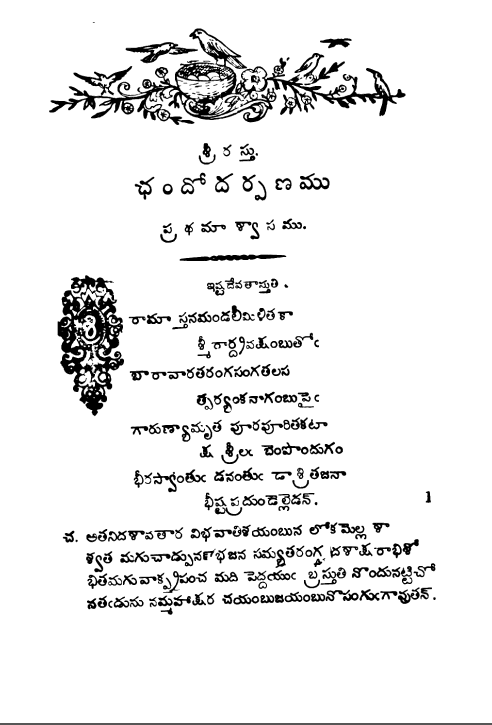 శ్రీ ర స్తు.
ఛందోదర్పణము
ప్రథమాశ్వాసము.
ఇష్టదేవతాస్తుతి.
శ్రీ
రామా స్తనమండలీమిళితకా
శ్మీరార్ద్రవక్షంబుతోఁ
బారావారతరంగసంగతలస
త్పర్యంకనాగంబుపైఁ
గారుణ్యామృత పూరపూరితకటా
క్ష శ్రీలఁ జెంపొందుగం
భీరస్వాంతుఁ డనంతుఁ డాశ్రితజనా
భీష్టప్రదుండెల్లెడన్. 1
చ. అతనిదశావతార విభవాతిశయంబున లోకమెల్ల శా
శ్వత మగుచాడ్పునణభజన సమ్యతరంగ దశాక్షరాభిశో
భితమగువాక్ప్రపంచ మది పెద్దయుఁ బ్రస్తుతి నొందునట్టిచో
నతఁడును నమ్మహాక్షర చయంబుజయంబునొసంగుఁగావుతన్.